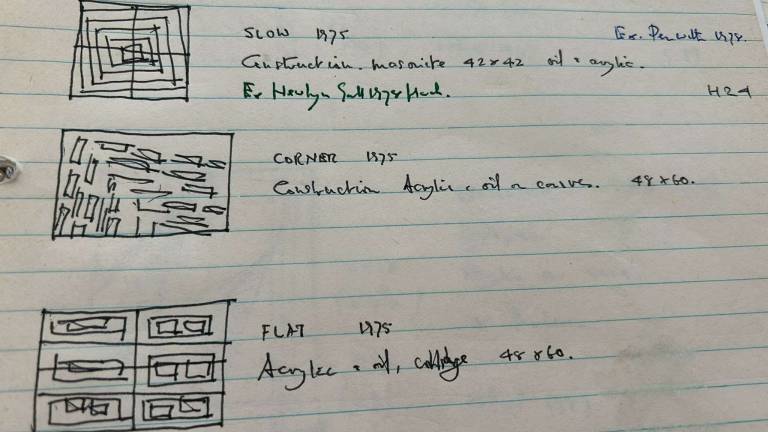 SLOW 1975 Ex. Penwith 1978.
Construction. masonite 42 x 42 oil + acrylic.
Ex Newlyn Gall 1978 H24
CORNER 1975
Construction Acrylic + oil on canvas. 48 x 60.
FLAT 1975
Acrylic + oil, collage 48 x 60.